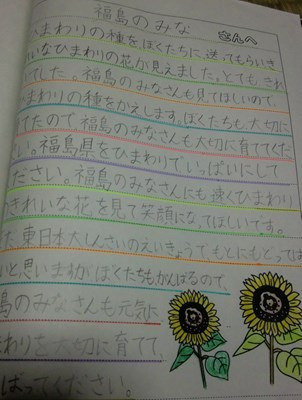 福島のみな さんへ
ひまわりの種を、ぼくたちに、送ってもらいき
れいなひまわりの花が見えました。とても きれ
いでした。福島のみなさんも見てほしいので、
ひまわりの種をかえします。ぼくたちも、大切に
てたので福島のみなさんも大切に育ててくだ
い。福島県をひまわりでいっぱいにして
ださい。福島のみなさんにも速くひまわり
きれいな花を見て笑顔になってほしいです。
、東日本大しんさいのえいきょうでもとにもどっては
いと思いますが、ぼくたちもがんばるので、
島のみなさんも元気に、
まわりを大切に育てて、
ばってください。